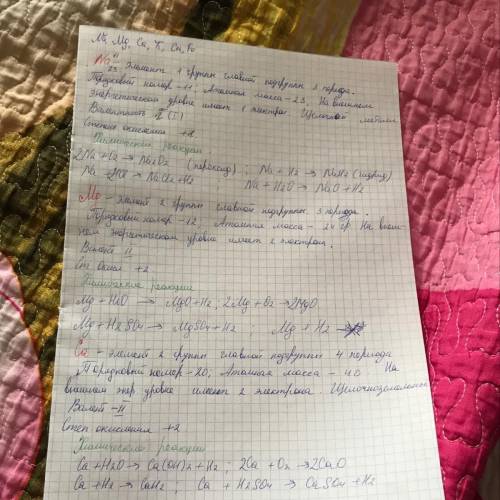 Na, Mg, Ca, K, Cu, Fe
Na 11 23 - Элемент 1 группы главной подгруппы 3 периода.
Порядковый номер - 11; Атомная масса - 23, На внешнем
энергетическом уровне имеет 1 электрон Щелочной металл
Валентность (I)
Степень окисления +
Химические реакции
2Na + O2 → Na2O2 (пероксид) ; Na + H2 → NaH2 (гидрид)
Na + HCl → NaCl2 + H2 Na + H2O → NaO + H2
Mg - элемент 2 группы главной подгруппы 3 периода.
Порядковый номер - 12. Атомная масса - 24 гр. На внеш-
нем энергетическом уровне имеет 2 электрона.
Валент II
Ст окисл +2
Химические реакции
Mg + H2O → MgO + H2; 2Mg + O2 → 2MgO
Mg + H2SO4 → MgSO4 + H2 ; Mg + H2 →
Ca - элемент 2 группы главной подгруппы 4 периода
Порядковый номер - 20; Атомная масса - 40 На
внешнем энер уровне имеет 2 электрона. Щелочноземельный
Валент - II
Степ окисления +2
Химические реакции
Ca + H2O → Ca(OH)2 + H2 ; 2Ca + O2 → 2CaO
Ca + H2 → CaH2 ; Ca + H2SO4 → CaSO4 + H2